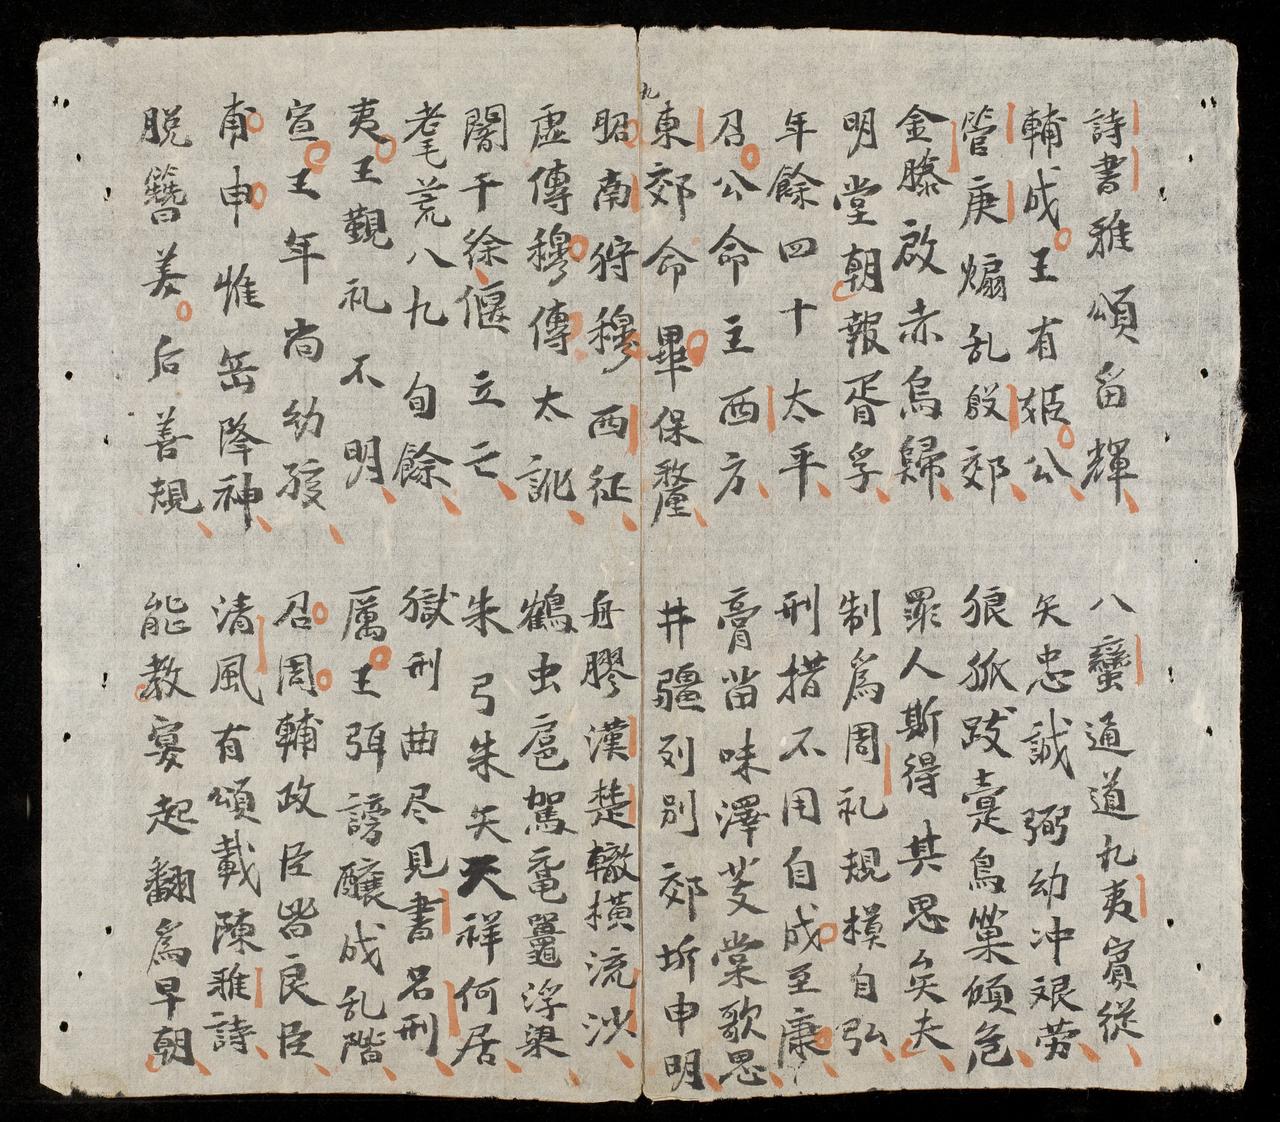 詩書雅頌留輝
八蠻通道九夷賓從
輔成王有姬公
矢忠誠弼幼冲艰劳
管庚煽乱殷郊
狼狐跋疐鳥巢傾危
金滕啟赤烏歸
罪人斯得其思矣夫
明堂朝報胥孚
制爲周礼規模自弘
年餘四十太平
刑措不用自成至康
召公命主西方
膏苗味澤茇棠歌思
東郊命畢保釐
井疆列別郊圻申明
昭南狩穆西征
舟膠漢楚轍橫流沙
虛傳穆傳太訛
鶴虫扈駕黿鼉浮梁
闇干徐偃立亡
朱弓朱矢天祥何居
耄荒八九旬餘
獄刑曲尽見書呂刑
夷王覲礼不明
厲王弭謗釀成乱階
宣王年尚幼孩
召周輔政臣皆良臣
甫申惟岳降神
清風有頌載陳雅詩
脱簪姜后善規
能教宴起翻爲早朝
九